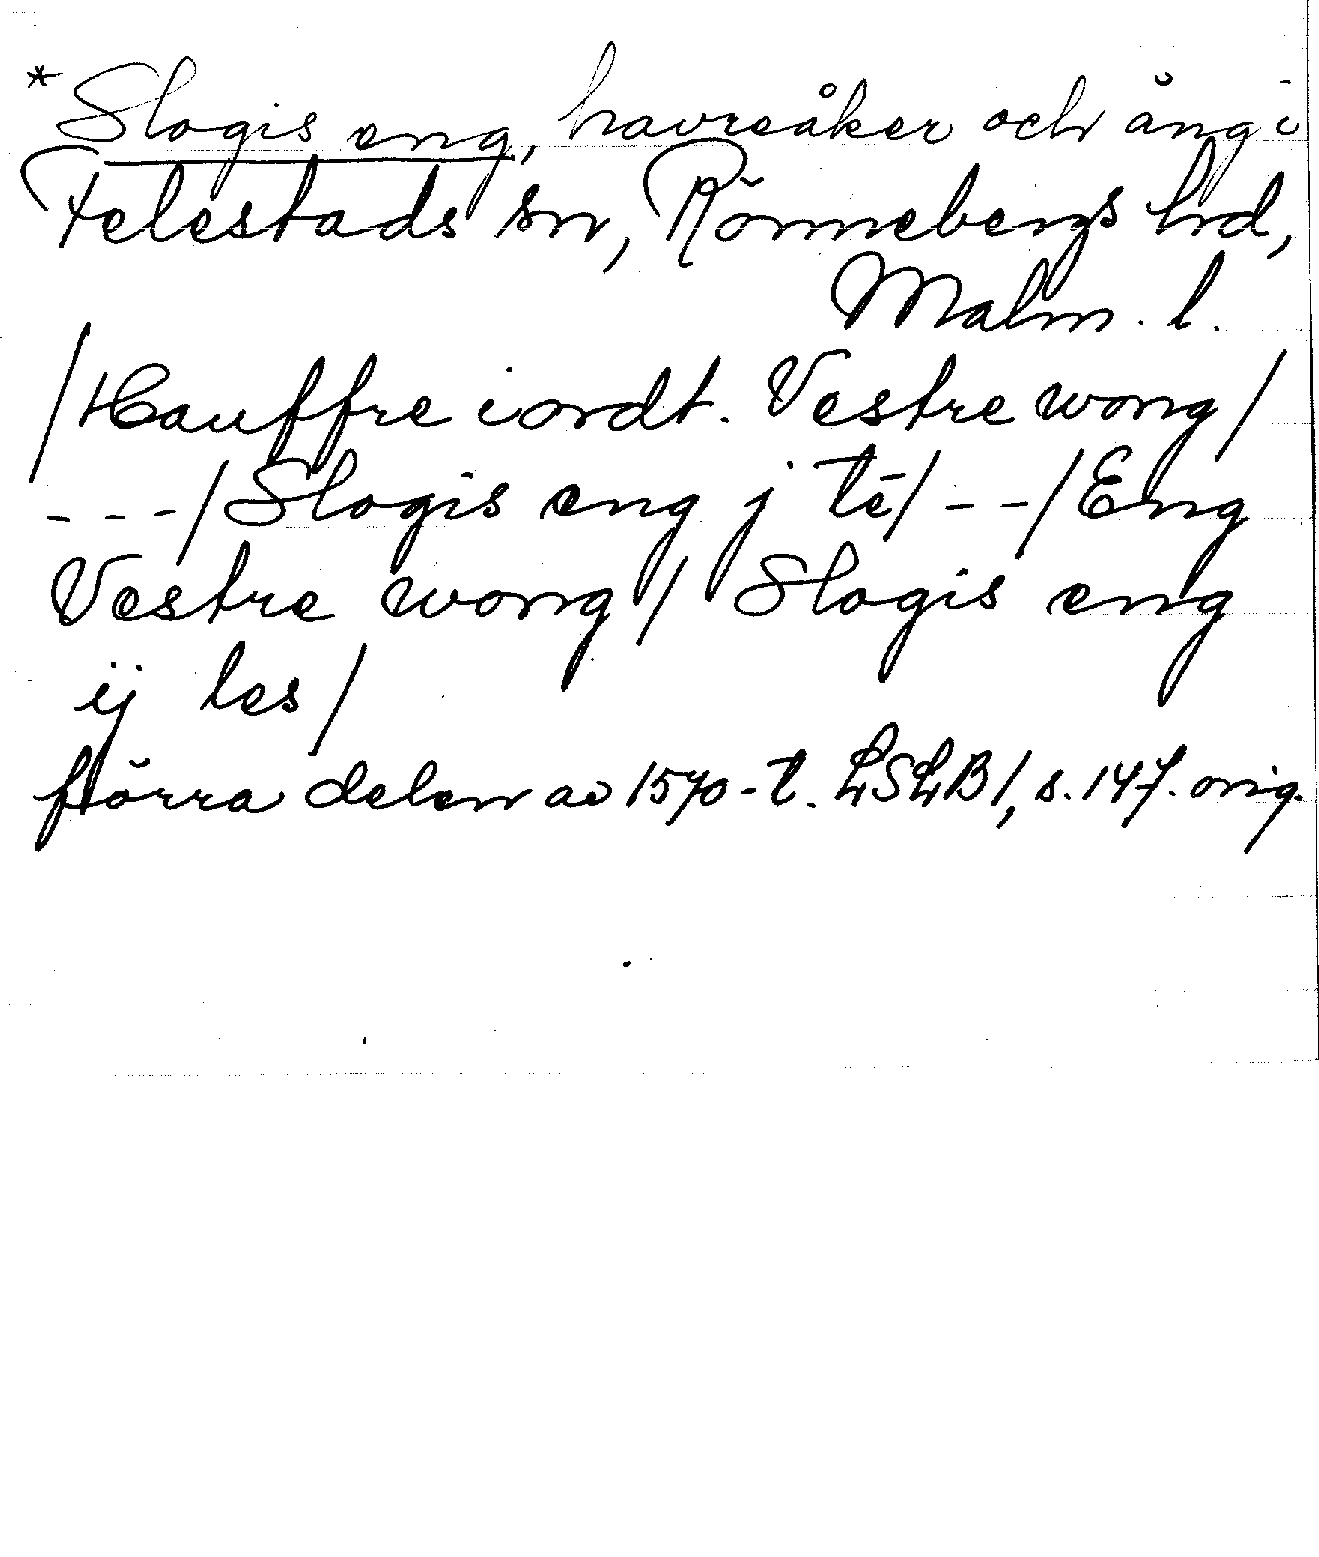 * Slogis eng, havreåker och äng i
Felestads sn, Rönnebergs hrd,
Malm. l.
/Hauffre iordt. Vestre wong/
---/Slogis eng j tē/ -- /Eng
Vestre wong/ Slogis eng
ij les/
förra delen av 1570-t. LSLB 1, s. 147. orig.